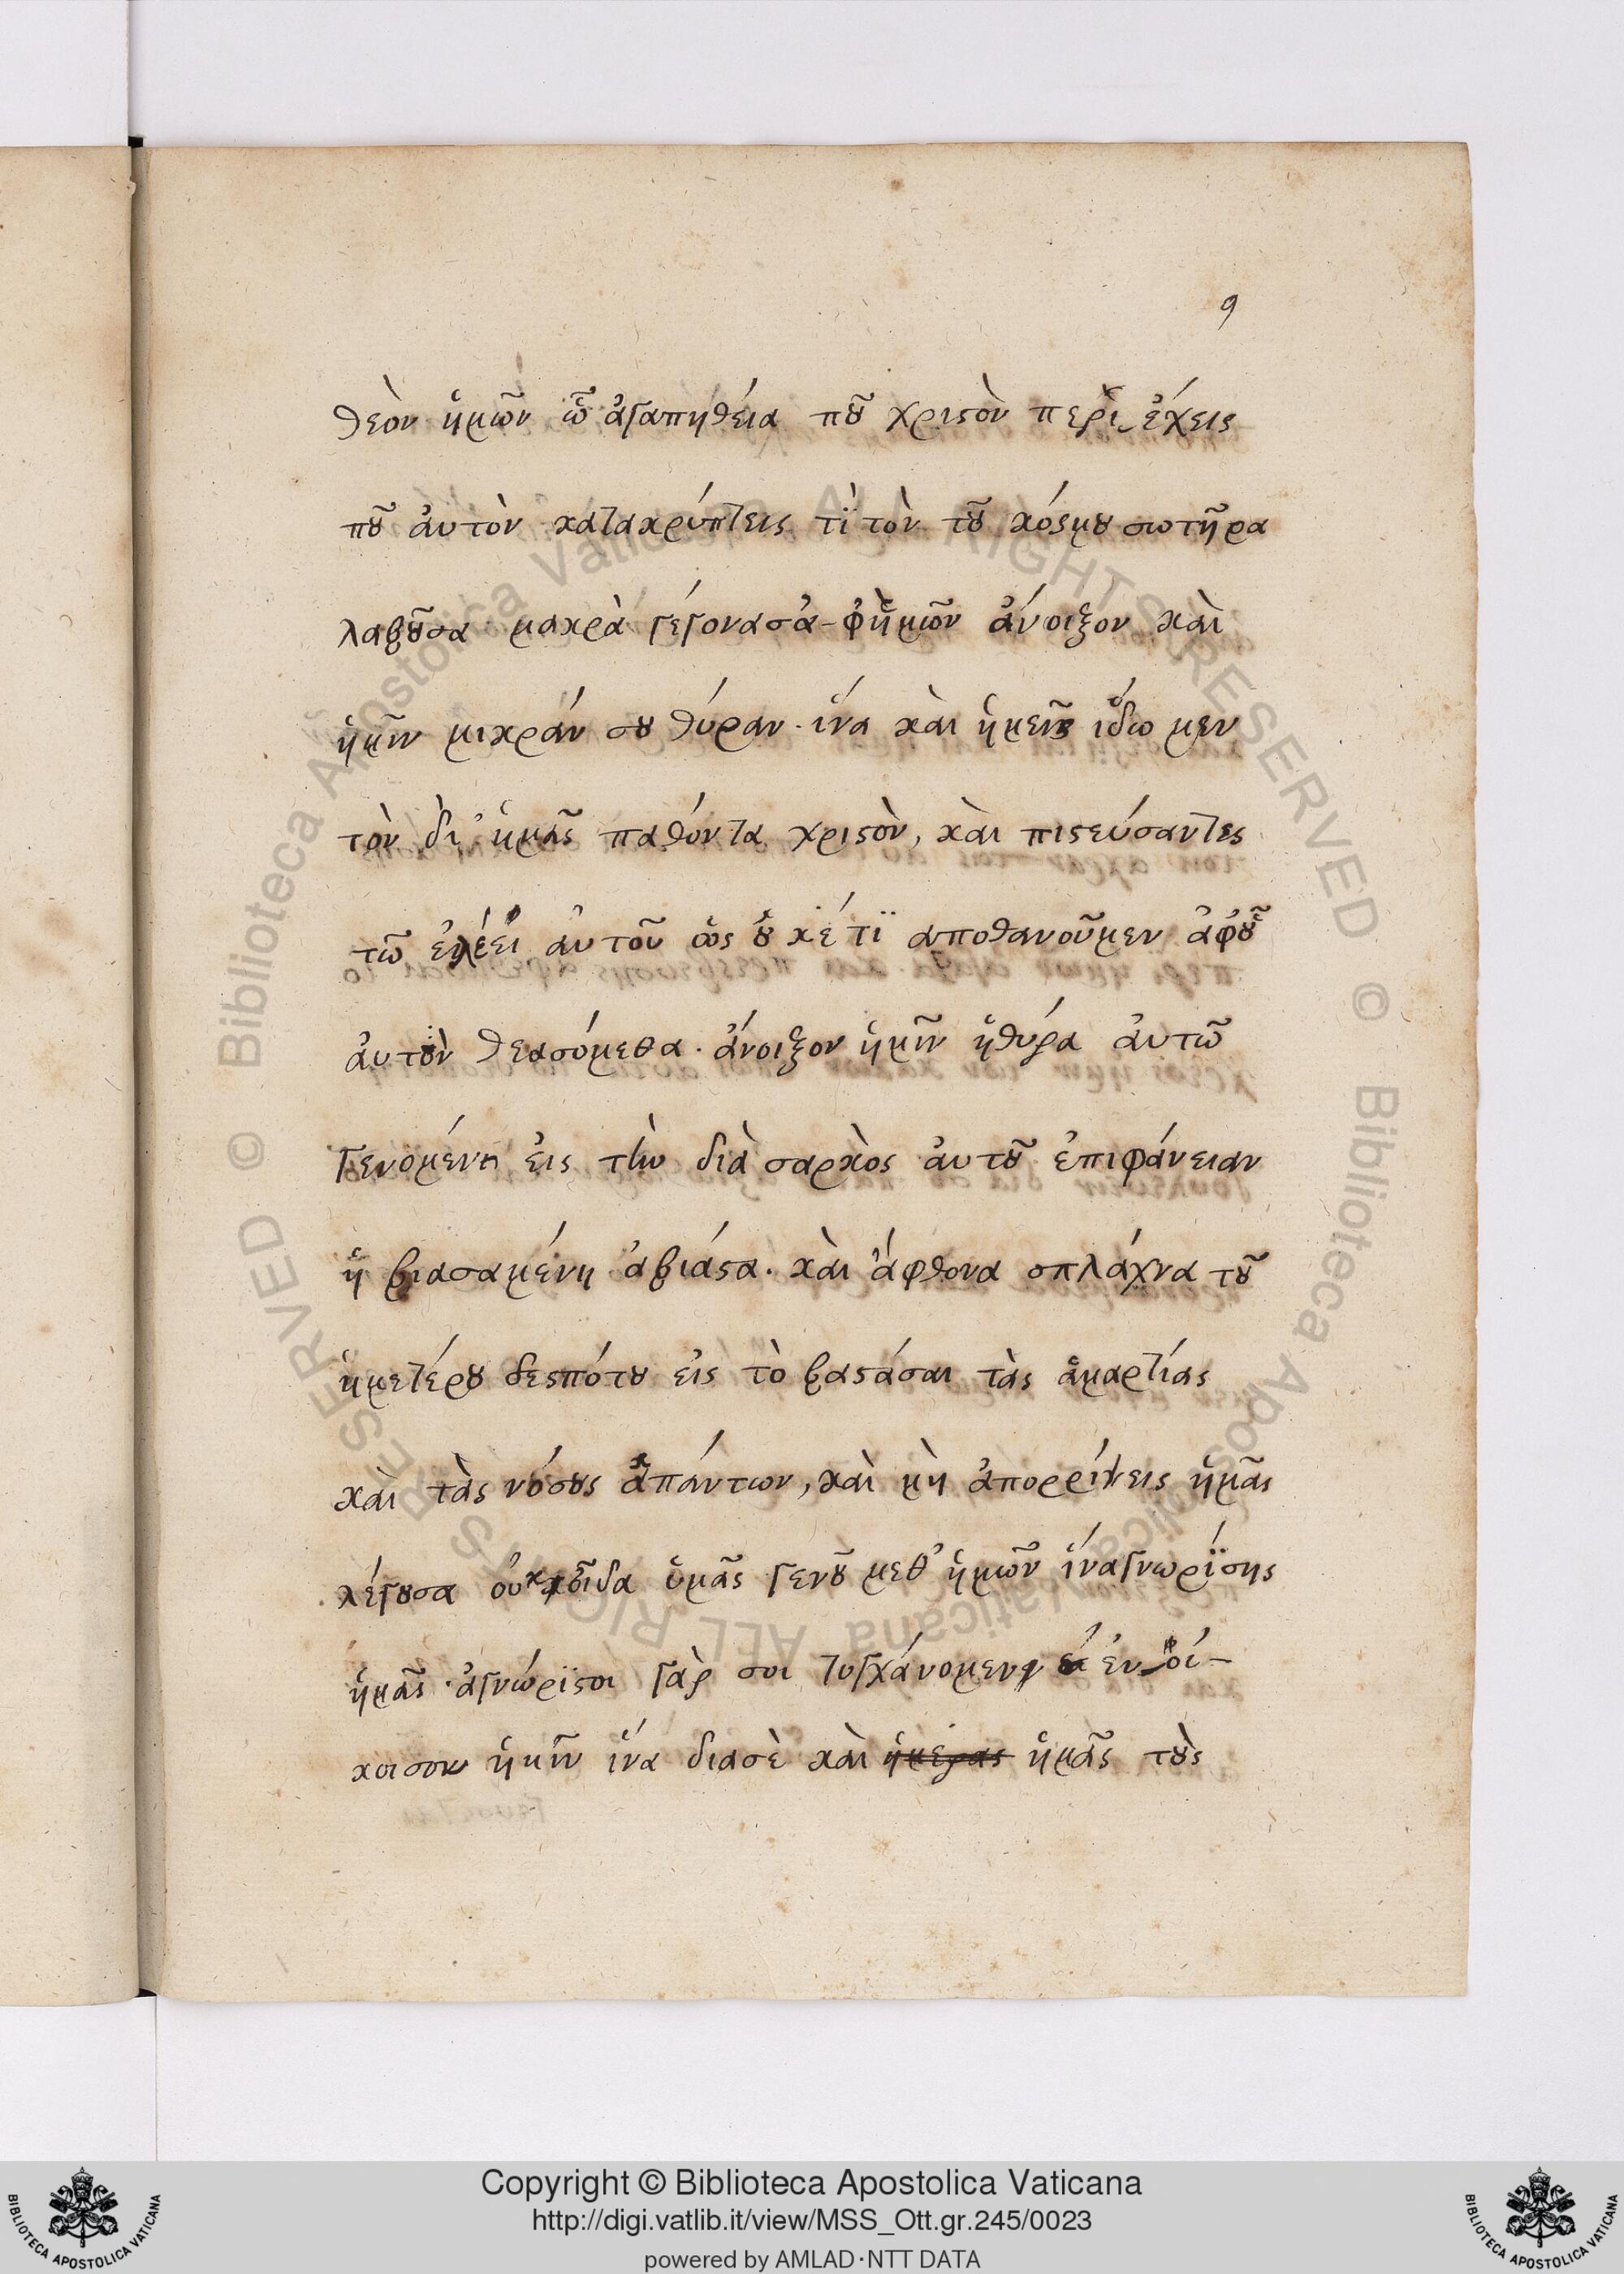 9
θεὸν ἡμῶν ὦ ἀγαπηθεία ποῦ χριστὸν περὶ ἔχεις
ποῦ ἀυτὸν κατακρύπτεις τΐ τὸν τοῦ κόσμου σωτῆρα
λαβοῦσα μακρὰ γέγονασὰ-φἡμῶν ἄνοιξον κὰι
ἡμῖν μικράν σου θύραν· ἵνα κὰι ἡμεῖς ἴδω μεν
τὸν δι' ἡμᾶς παθόντα χριστὸν, κὰι πιστεύσαντες
τῶ ἐλέει ἀυτοῦ ὡς οὐ κέτϊ αποθανοῦμεν ἀφοῦ
ἀυτὸν θεασόμεθα· ἄνοιξον ἡμῖν ἡθύρα ἀυτῶ
γενομένη ἐις τὴν διὰ σαρκὸς ἀυτοῦ ἐπιφάνειαν
ἡ βιασαμένη ἀβιάστα· κὰι ἄφθονα σπλάχνα τοῦ
ἡμετέρου δεσπότου εἰς τὸ βαστάσαι τὰς ἁμαρτίας
κὰι τὰς νόσους ἁπάντων, κὰι μὴ ἀπορρίψεις ἡμᾶς
λέγουσα οὐκ οἶδα ὑμᾶς γενοῦ μεθ' ἡμῶν ἵναγνωρΐσης
ἡμᾶς· ἀγνώρϊστοι γὰρ σοι τυγχάνομεν ἐν οἴ-
κοισον ἡμῖν ἵνα διασὲ κὰι ἡμέρας ἡμᾶς τοὺς
Copyright © Biblioteca Apostolica Vaticana
http://digi.vatlib.it/view/MSS_Ott.gr.245/0023
powered by AMLAD·NTT DATA
BIBLIOTECA APOSTOLICA VATICANA
BIBLIOTECA APOSTOLICA VATICANA
© Biblioteca Apostolica Vaticana ALL RIGHTS RESERVED © Biblioteca Apostolica Vaticana ALL RIGHTS RESERVED